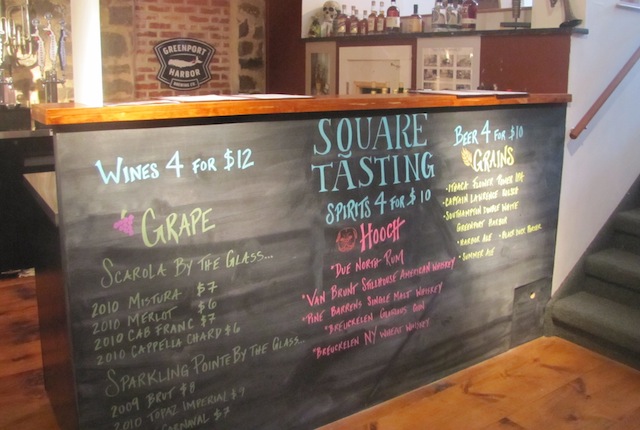 GREENPORT
HARBOR
BREWING CO.
WINES 4 FOR $12
GRAPE
SCAROLA BY THE GLASS...
2010 MISTURA $7
2010 MERLOT $6
2010 CAB FRANC $7
2010 CAPPELLA CHARD $6
SPARKLING POINTE BY THE GLASS...
2009 BRUT $8
2010 TOPAZ IMPERIAL $9
CARNAVAL $7
SQUARE
TASTING
SPIRITS 4 FOR $10
HOOCH
*DUE NORTH RUM
*VAN BRUNT STILLHOUSE AMERICAN WHISKEY
*PINE BARRENS SINGLE MALT WHISKEY
*BREUCKELEN GLORIOUS GIN
*BREUCKELEN NY WHEAT WHISKEY
BEER 4 FOR $10
GRAINS
•ITHACA FLOWER POWER IPA
•CAPTAIN LAWRENCE KOLSCH
•SOUTHAMPTON DOUBLE WHITE
GREENPORT HARBOR
•HARBOR ALE •BLACK DUCK PORTER
•SUMMER ALE